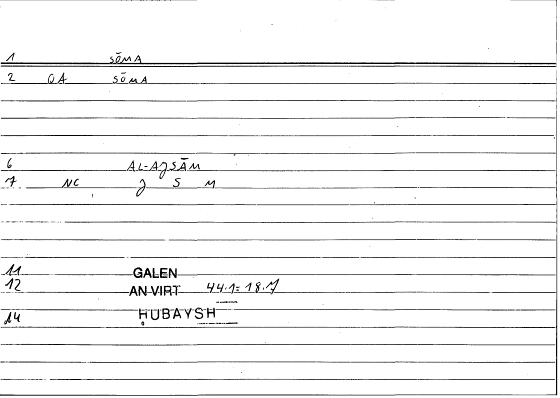 1 SŌMA
2 QA SŌMA
6 AL-AJSĀM
7 NC J S M
11 GALEN
12 AN VIRT 44.1=18.7
14 ḤUBAYSH